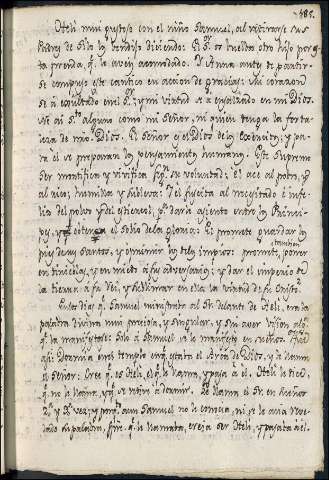 485.
Heli mui gustoso con el niño Samuel, al retirarse sus
Padres de Silo los bendijo diciendo: El Sr. os vuelva otro hijo por
prenda, qe. le aveis acomodado. Y Anna antes de partir-
se compuso este cantico en accion de gracias: Mi corazon
se à exaltado en el Sr.; y mi virtud se à ensalzado en mi Dios.
No ai Sto. alguno como mi Señor, ni quien tenga la forta-
leza de mio Dios. El Señor es el Dios de las Ciencias; y pa-
ra el se preparan los pensamientos humanos. Este Supremo
Ser mortifica y vivifica sgn. su voluntad; El ace al pobre, y
al rico; humilla y subleva: Y el suscita al necesitado è infe-
liz del polvo y del estiercol, pa. darle asiento entre los Princi-
pes, y el solio de la gloria: El promete guardar los
pies de sus Santos, y arruinar los impios: promete poner
tambien
en tinieblas, y en miedo à sus adversarios; y dar el imperio de
la tierra à su Rei, y sublimar en ella la virtud de su Cristo.
En los dias qe. Samuel ministraba al Sr. delante de Heli, era la
palabra divina mui preciosa, y singular, y sin aver vision
qe. la manifestase: Solo à Samuel se le manifestó en sueños
asi: Dormia en el templo en qe. estaba el Arca de Dios, y le llama
el Señor: Cree qe. es Heli, el qe. le llama, y pasa à el. Heli le dice
qe. no le llama, y qe. se retire à dormir. Le llama el Sr. en sueños
2a. y 3a. vez; y porqe. aun Samuel no le conocia, ni se le avia reve-
lado su palabra, qe. le llamaba, creia ser Heli, y pasaba à el.